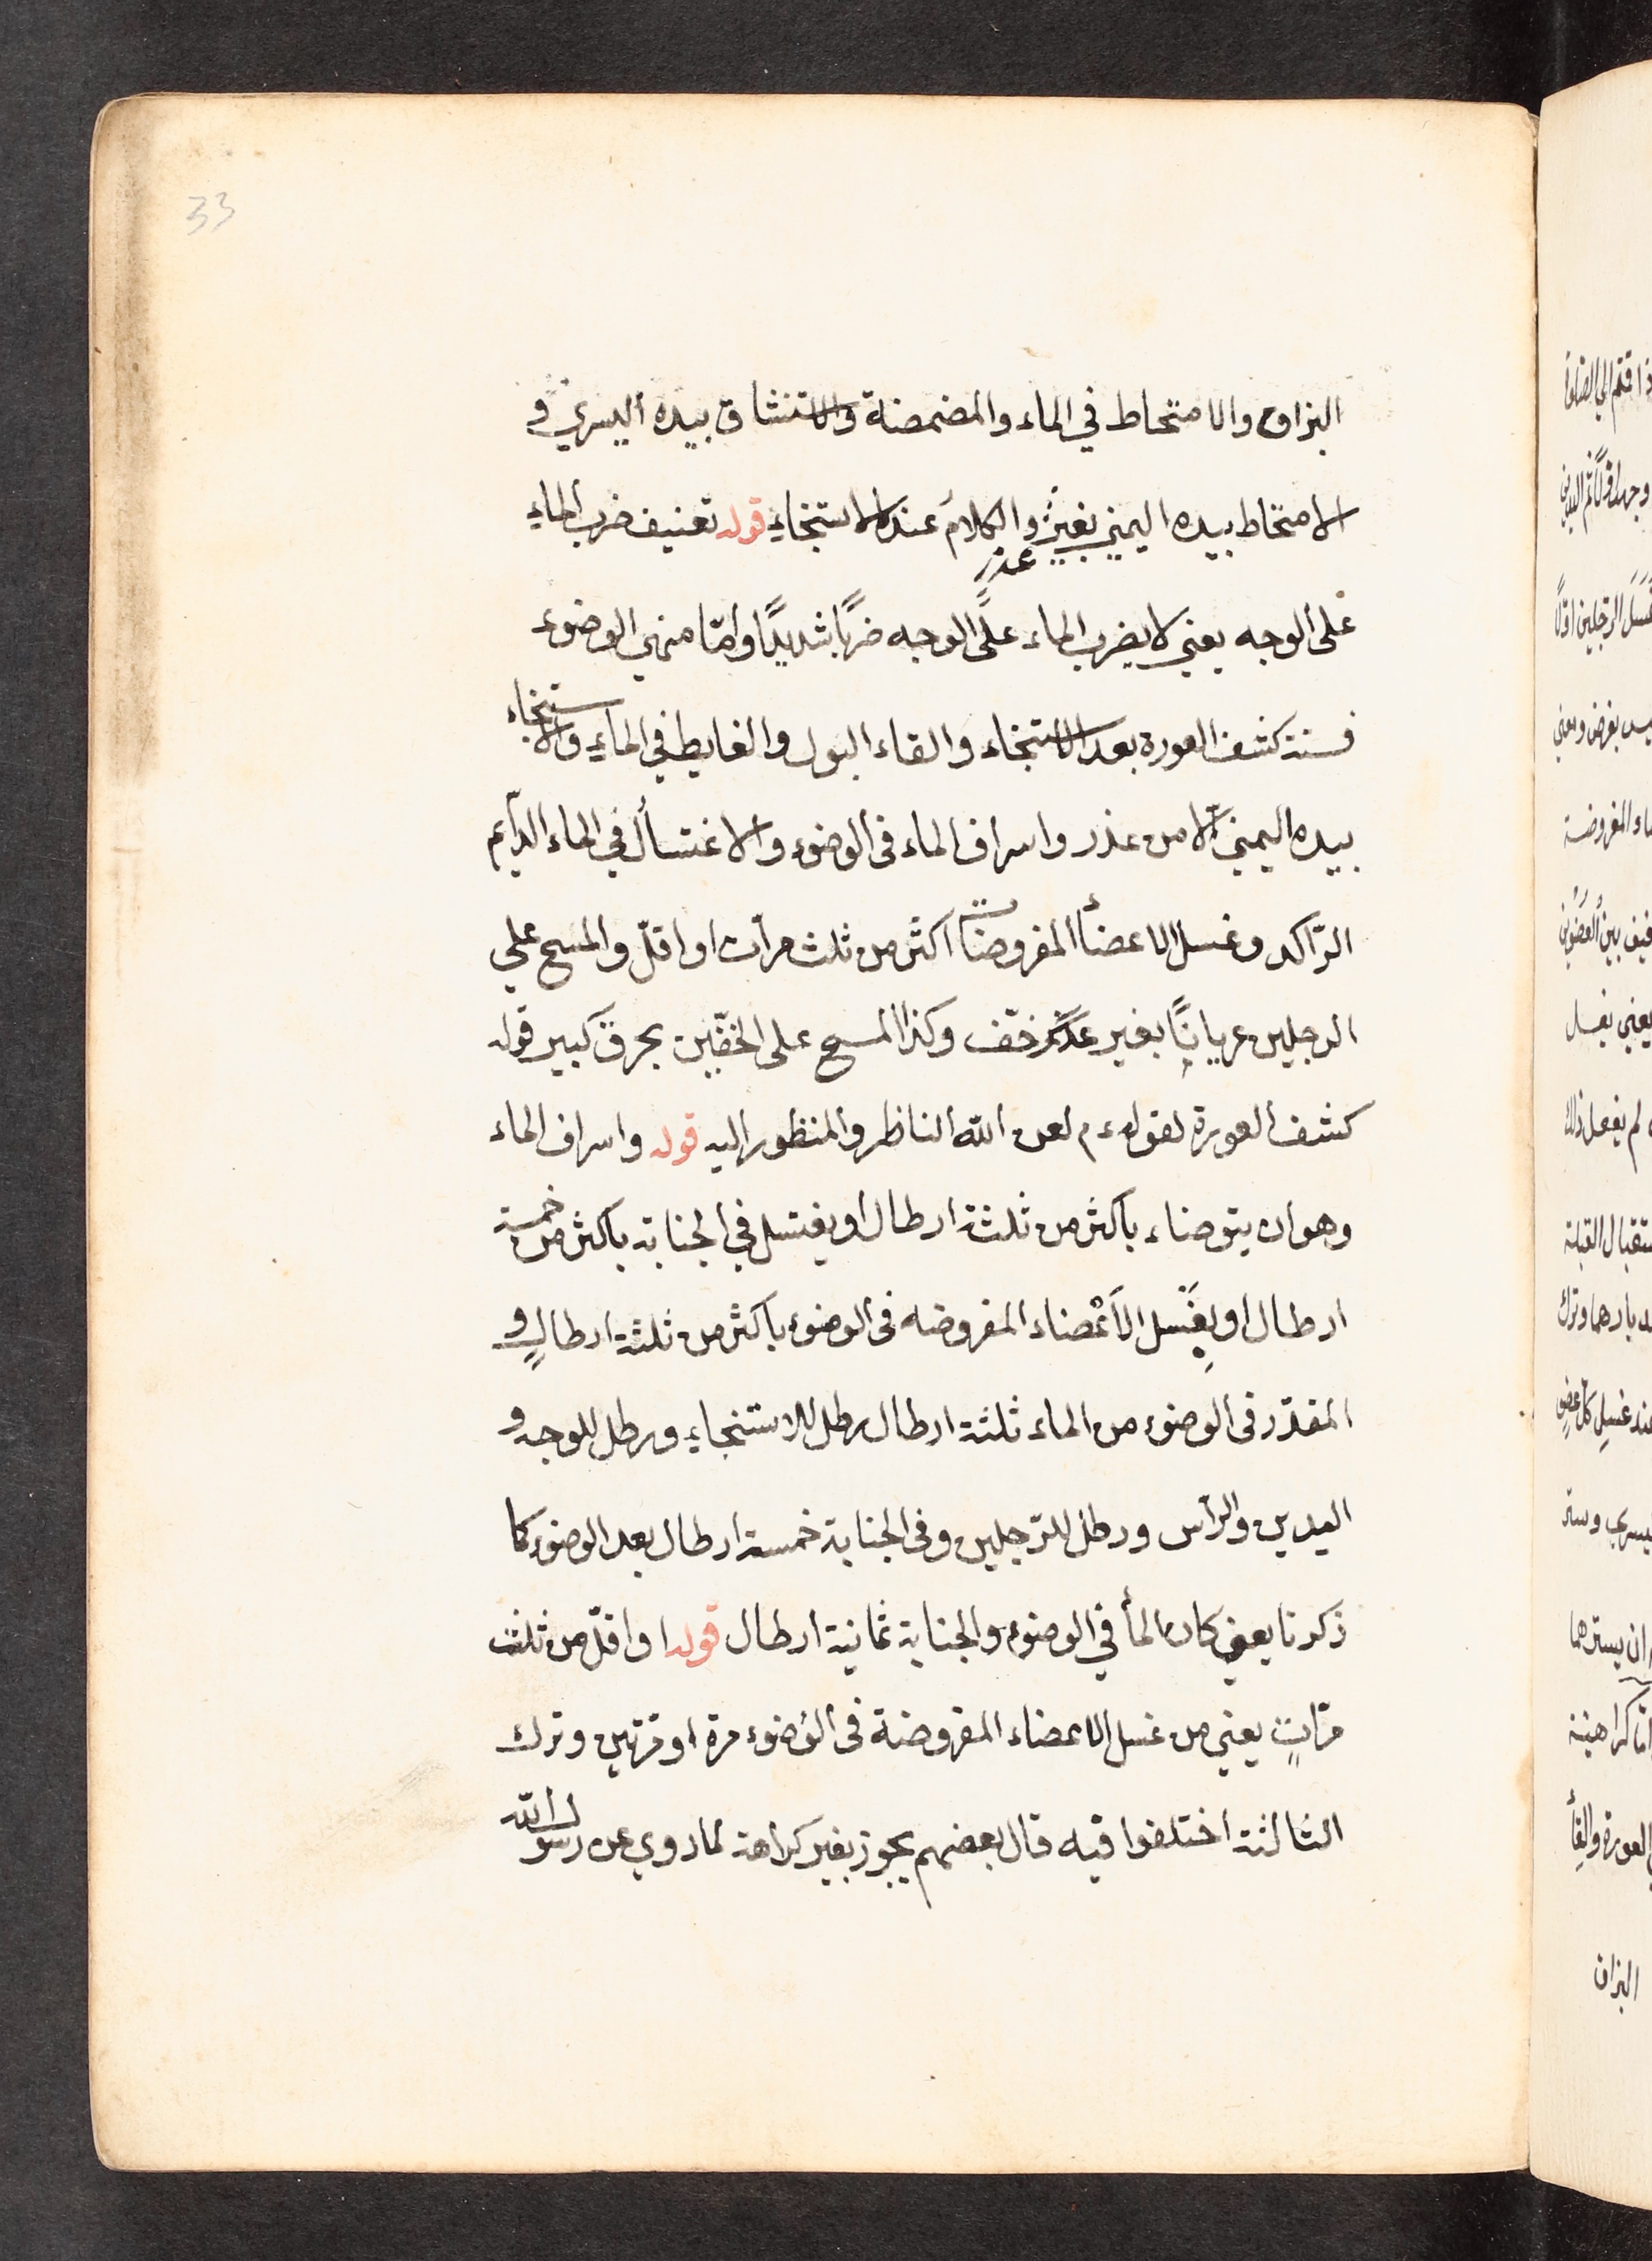 33
البزاق والامتخاط في الماء والمضمضة والاستنشاق بيده اليسري و
الامتخاط بيده اليمني بغير عذر والكلام عند الاستنجاء قوله تعنيف ضرب الماء
على الوجه يعني لا يضرب الماء على الوجه ضربًا شديدًا وامّا منهي الوضوء
فستة كشف العورة بعد الاستنجاء والقاء البول والغايط في الماء والاستنجاء
بيده اليمني الّا من عذر واسراف الماء فى الوضوء والاغتسال في الماء الدآئم
الرّاكد وغسل الاعضأ المفروضات اكثر من ثلث مرات او اقلّ والمسح علي
الرجلين عريانًا بغير خفّ وكذا المسح على الخفّين بخرق كبير قوله
كشف العورة لقوله ءم لعن الله الناظر والمنظور اليه قوله واسراف الماء
وهو ان يتوضاء باكثر من ثلثة ارطال او يغتسل في الجنابة باكثر من خمسة
ارطال او يغسل الاعضاء المفروضه فى الوضوء باكثر من ثلثة ارطالٍ و
المقدّر فى الوضوء من الماء ثلثة ارطال رطل للاستنجاءِ ورطل للوجه و
اليدين والرّأس ورطل للرّجلين وفى الجنابة خمسة ارطال بعد الوضوء كما
ذكرنا يعني كان المأ في الوضوء والجنابة ثمانية ارطال قوله او اقلّ من ثلث
مرّاتٍ يعني من غسل الاعضاء المفروضة فى الوُضوء مرة او مرّتين وترك
الثالثة اختلفوا فيه قال بعضهم يجوز بغير كراهة لما روي عن رسول الله
البزاق